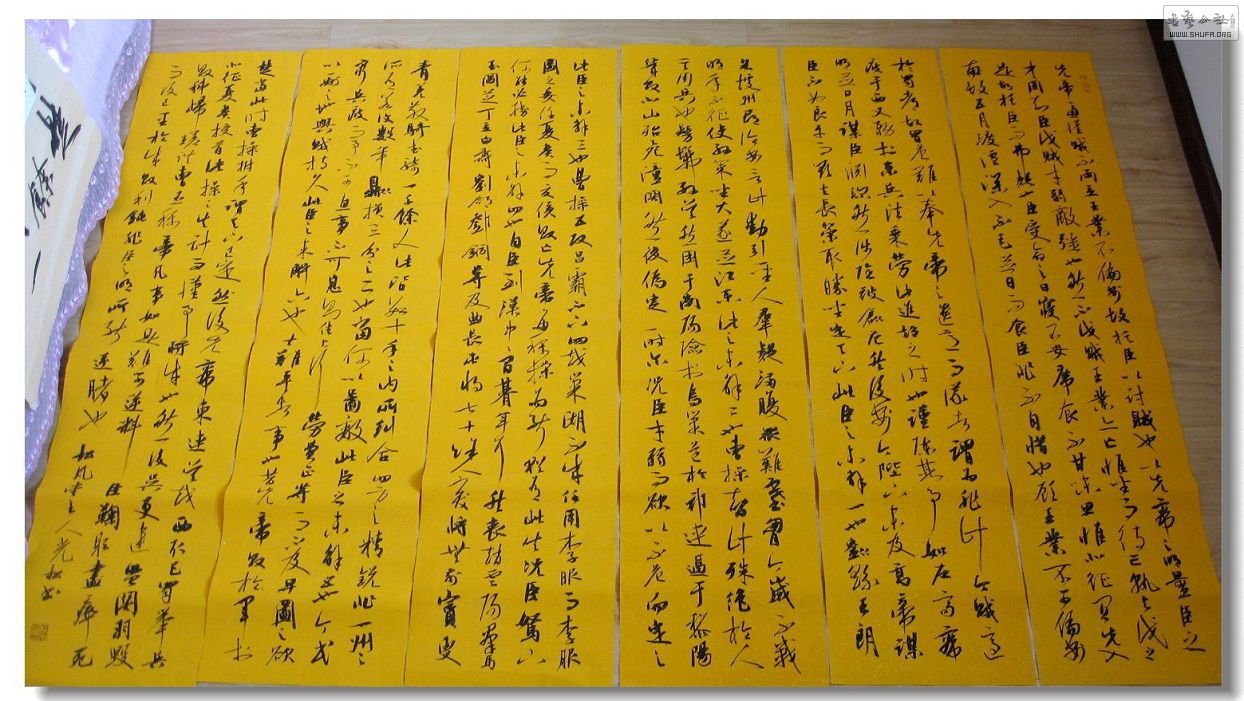 先帝慮漢賊不兩立王業不偏安故托臣以討賊也以先帝之明量臣之
才固知臣伐賊才弱敵強也然不伐賊王業亦亡惟坐而待亡孰與伐之
是故托臣而弗疑臣受命之日寢不安席食不甘味思惟北征宜先入
南故五月渡瀘深入不毛並日而食臣非不自惜也顧王業不可偏安
於蜀都故冒危難以奉先帝之遺意而議者謂為非計今賊適
疲于西又務於東兵法乘勞此進趨之時也謹陳其事如左高帝
明並日月謀臣淵深然涉險被創危然後安今陛下未及高帝謀
臣不如良平而欲以長策取勝坐定天下此臣之未解一也劉繇王朗
各據州郡論安言計動引聖人群疑滿腹眾難塞胸今歲不戰
明年不征使孫策坐大遂並江東此臣之未解二也曹操智計殊絕於人
其用兵也髣髴孫吳然困于南陽險於烏巢危於祁連逼于黎陽
幾敗北山殆死潼關然後偽定一時爾況臣才弱而欲以不危而定之
此臣之未解三也曹操五攻昌霸不下四越巢湖不成任用李服而李服
圖之委任夏侯而夏侯敗亡先帝每稱操為能猶有此失況臣駑下
何能必勝此臣之未解四也自臣到漢中中間期年耳然喪趙雲陽群馬
玉閻芝丁立白壽劉郃鄧銅等及曲長屯將七十餘人突將無前賨叟
青羌散騎武騎一千餘人此皆數十年之內所糾合四方之精銳非一州之
所有若復數年則損三分之二也當何以圖敵此臣之未解五也今民
窮兵疲而事不可息事不可息則住與行勞費正等而不及早圖之欲
以一州之地與賊持久此臣之未解六也夫難平者事也昔先帝敗軍於
楚當此時曹操拊手謂天下已定然後先帝東連吳越西取巴蜀舉兵
北征夏侯授首此操之失計而漢事將成也然後吳更違盟關羽毀
敗秭歸蹉跌曹丕稱帝凡事如是難可逆料臣鞠躬盡瘁死
而後已至於成敗利鈍非臣之明所能逆睹也
主人光松書
WWW.SHUFA.ORG